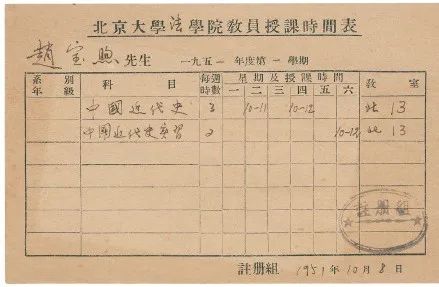 北京大學法學院教員授課時間表
趙宝煦先生 一九五一年度第一學期
系別年級 科目 每週時數 星期及授課時間 教室
一 二 三 四 五 六
中國近代史 3 10-11 10-12 北 13
中國近代史實習 2 10-12 北 13
註册組
註册組 1951年10月8日